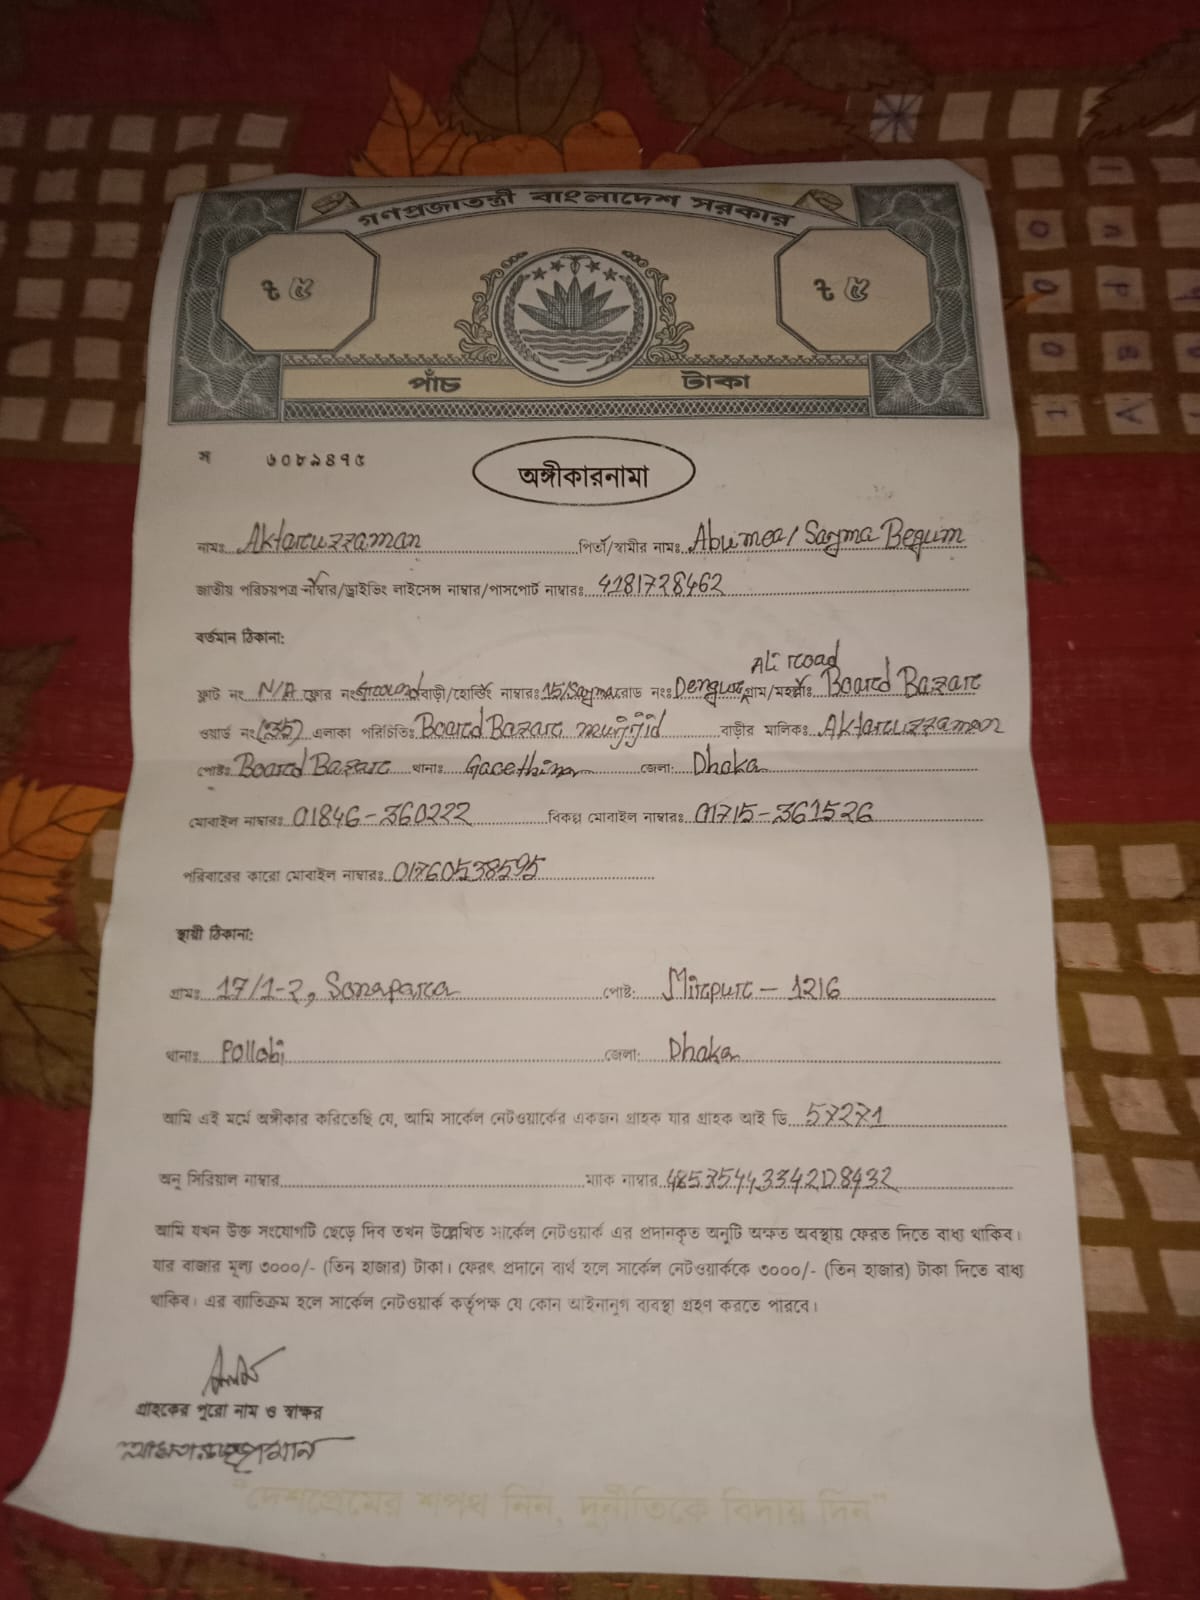 গণপ্রজাতন্ত্রী বাংলাদেশ সরকার
৳ ৫ ৳ ৫
পাঁচ টাকা
স ৬০৮৯৪৭৫
অঙ্গীকারনামা
নামঃ Aktaruzzaman পিতা/স্বামীর নামঃ Abu mea/ Sayma Begum
জাতীয় পরিচয়পত্র নাম্বার/ড্রাইভিং লাইসেন্স নাম্বার/পাসপোর্ট নাম্বারঃ 4181728462
বর্তমান ঠিকানা:
Ali road
ফ্লাট নং N/A ফ্লোর নংঃ Ground বাড়ী/হোল্ডিং নাম্বারঃ 15/Sayma রোড নংঃ গ্রাম/মহল্লাঃ Board Bazar
ওয়ার্ড নং (35) এলাকা পরিচিতিঃ Board Bazar বাড়ীর মালিকঃ Aktaruzzaman
পোষ্টঃ Board Bazar থানাঃ জেলা: Dhaka
মোবাইল নাম্বারঃ 01846-360222 বিকল্প মোবাইল নাম্বারঃ 01715-361526
পরিবারের কারো মোবাইল নাম্বারঃ 01760538595
স্থায়ী ঠিকানা:
গ্রামঃ 17/1-2, Sonapara পোষ্ট: Mirapur - 1216
থানাঃ Pollabi জেলা: Dhaka
আমি এই মর্মে অঙ্গীকার করিতেছি যে, আমি সার্কেল নেটওয়ার্কের একজন গ্রাহক যার গ্রাহক আই ডি 57271
অনু সিরিয়াল নাম্বার ম্যাক নাম্বার 485754433420D8432
আমি যখন উক্ত সংযোগটি ছেড়ে দিব তখন উল্লেখিত সার্কেল নেটওয়ার্ক এর প্রদানকৃত অনুটি অক্ষত অবস্থায় ফেরত দিতে বাধ্য থাকিব।
যার বাজার মূল্য ৩০০০/- (তিন হাজার) টাকা। ফেরৎ প্রদানে ব্যর্থ হলে সার্কেল নেটওয়ার্ককে ৩০০০/- (তিন হাজার) টাকা দিতে বাধ্য
থাকিব। এর ব্যতিক্রম হলে সার্কেল নেটওয়ার্ক কর্তৃপক্ষ যে কোন আইনানুগ ব্যবস্থা গ্রহণ করতে পারবে।
গ্রাহকের পুরো নাম ও স্বাক্ষর
"দেশপ্রেমের শপথ নিন, দুর্নীতিকে বিদায় দিন"